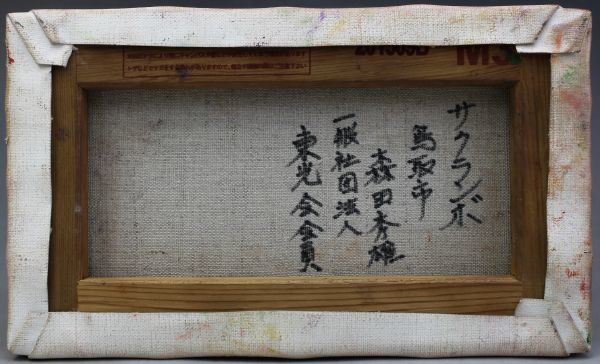 サクランボ
鳥取市
森田秀雄
一般社団法人
東光会会員
M3